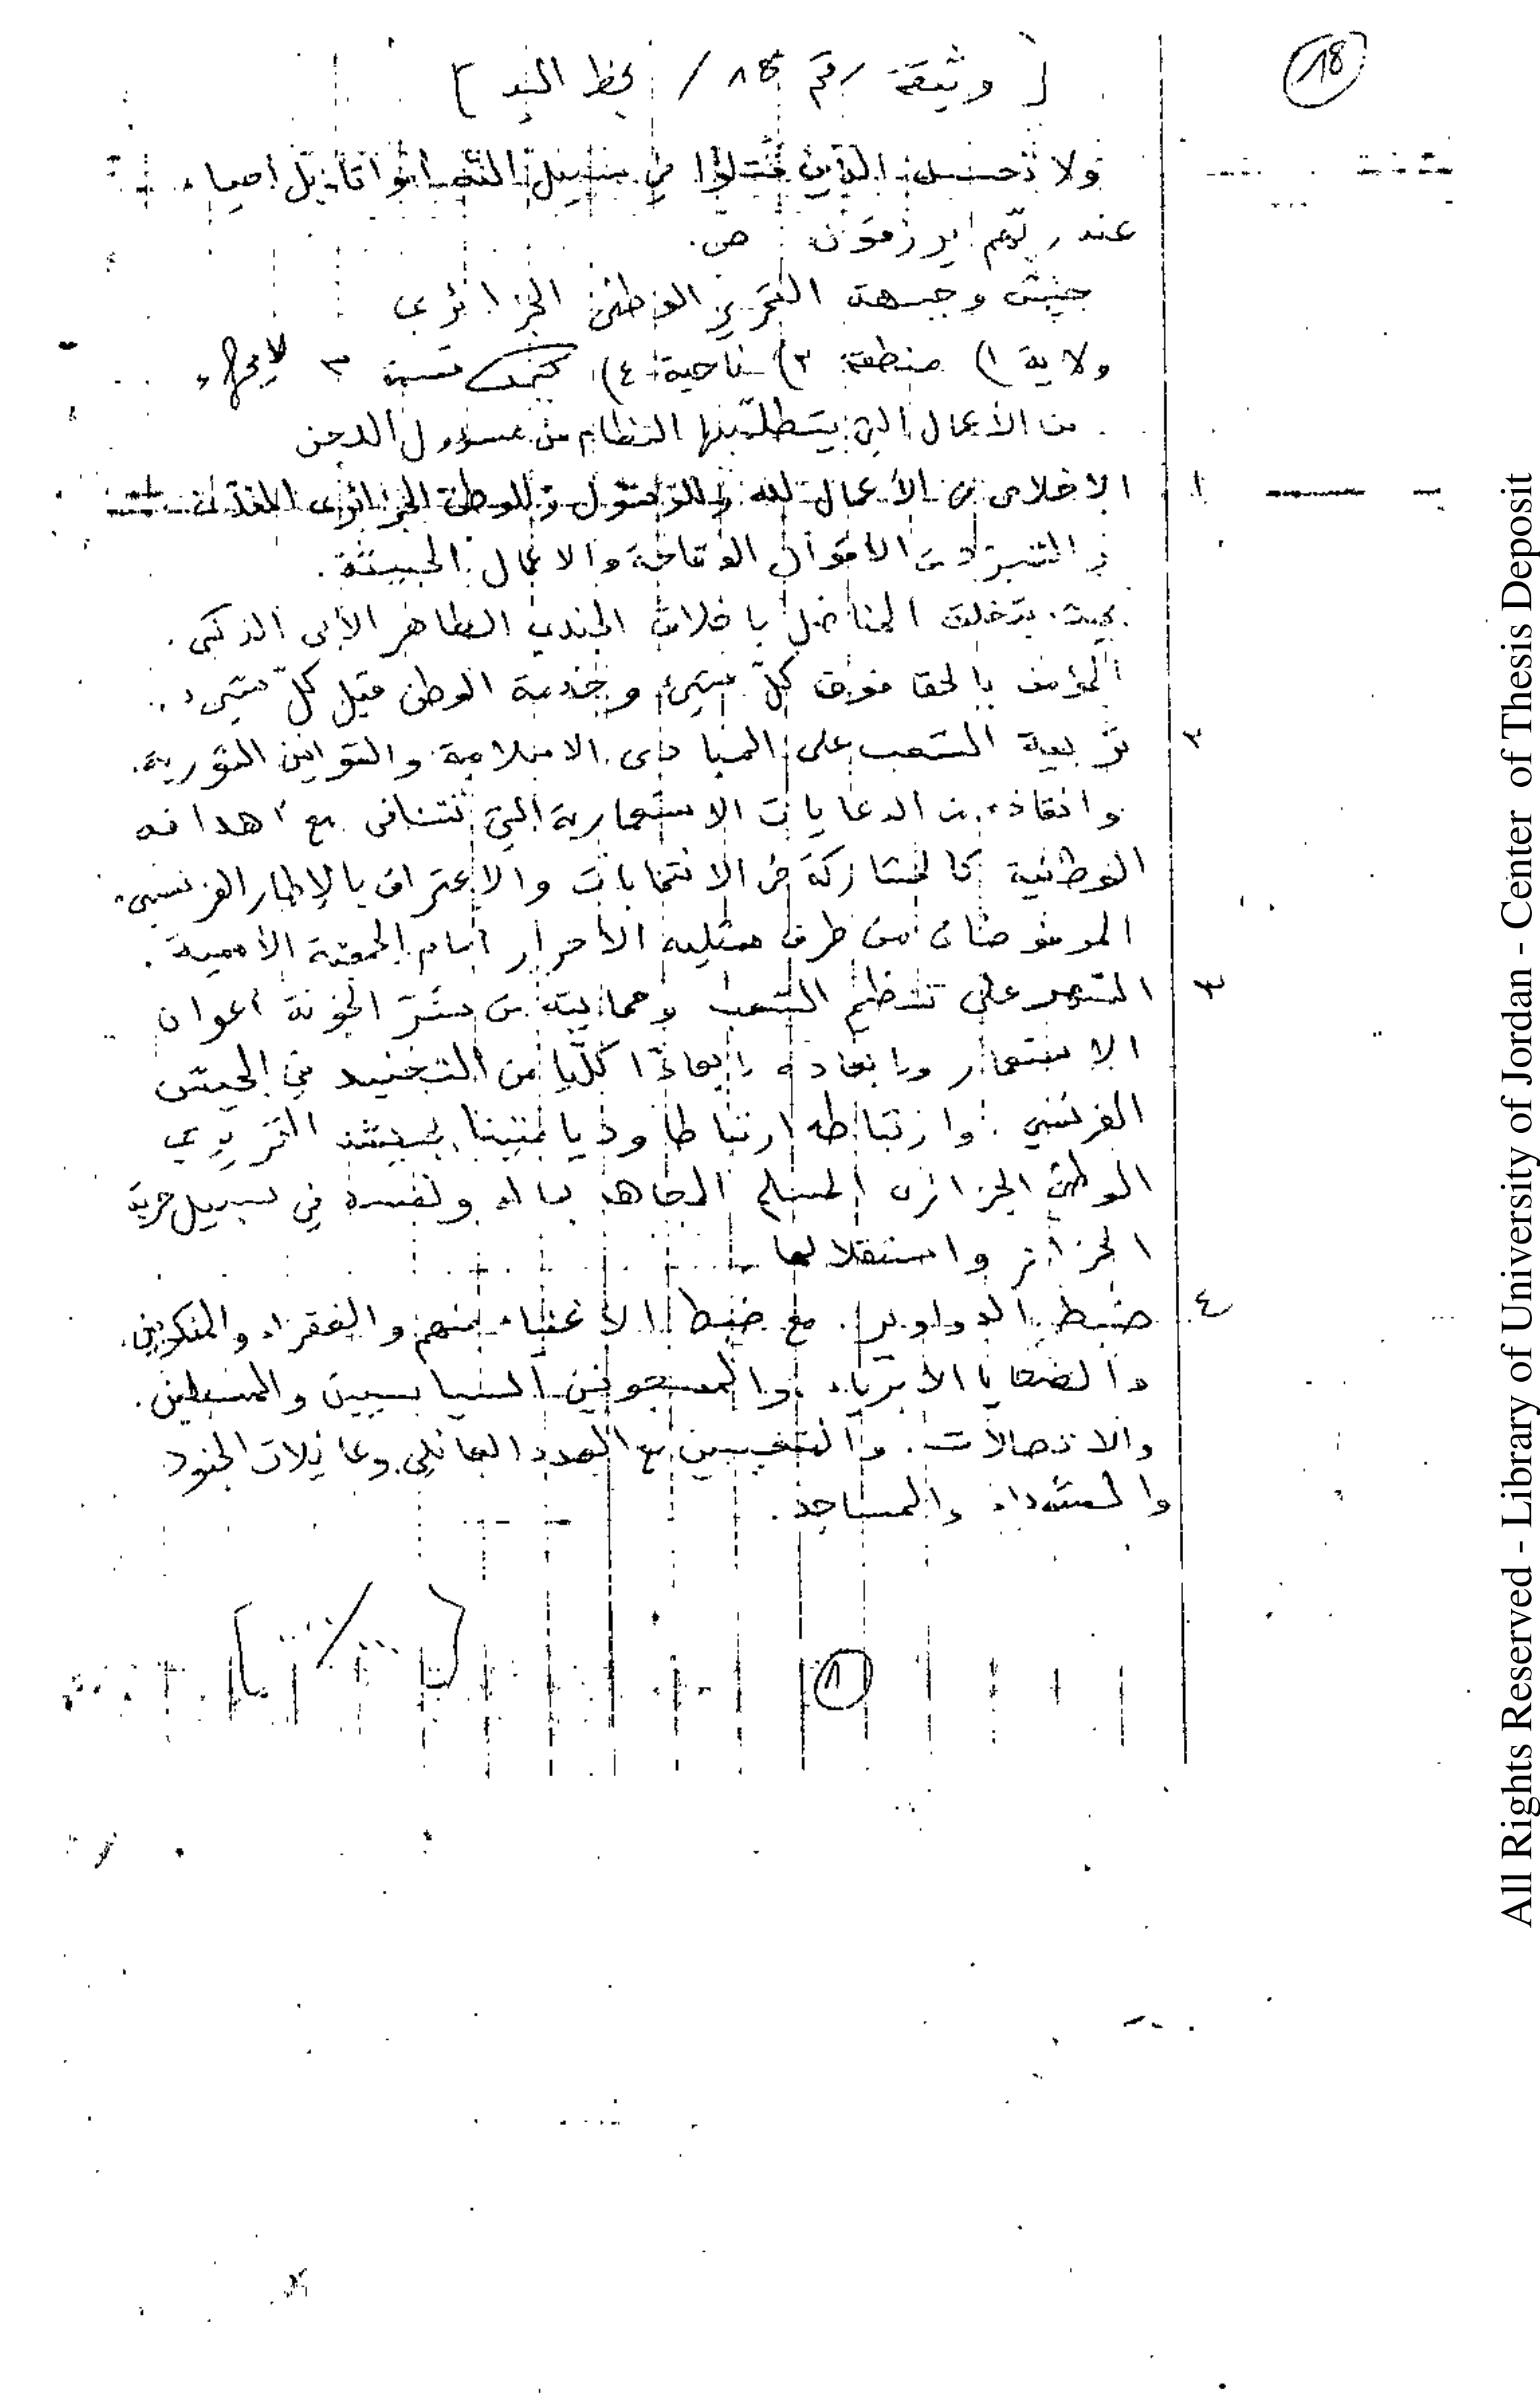 18
[ وثيقة رقم 18 / بخط اليد ]
ولا تحسبن الذين قتلوا في سبيل الله أمواتا بل احياء
عند ربهم يرزقون ص.
جيش وجبهة التحرير الوطني الجزائري
ولاية ١) منطقة ٣) ناحية ٤) قسمة ٣
من الأعمال التي يتطلبها النظام من مسؤول
١ الاخلاص في الأعمال لله وللرسول وللوطن الجزائري المفدى
من الأقوال الوقاحة والاعمال الخبيثة.
بحيث يتخلق المناضل باخلاق الجندي الطاهر الأبي الذكي.
المؤمن بالحق فوق كلّ شيئ وخدمة الوطن قبل كلّ شيئ.
٢ تربية الشعب على المبادئ الاسلامية والقوانين الثورية.
وانقاذه من الدعايات الاستعمارية التي تتنافى مع أهدافه
الوطنية كالمشاركة في الانتخابات والاعتراف بالإطار الفرنسي.
المرفوضان من طرف ممثليه الأحرار أمام الأممية.
٣ السهر على تنظيم الشعب وحمايته من شرّ الخونة أعوان
الاستعمار وإبعاده إبعادًا كلّيا من التجنيد في الجيش
الفرنسي. وارتباطه ارتباطا وديا متينا بجيشه التحريري
الوطني الجزائري المسلم المجاهد بماله ونفسه في سبيل حرية
الجزائر واستقلالها
٤ ضبط الدواوير. مع ضبط الأغنياء منهم والفقراء والمنكوبين.
والضحايا الأبرياء والمسجونين السياسيين والمسبلين.
والاتصالات. مع العدد العائلي وعائلات الجنود
والشهداء والمساجد.
1
All Rights Reserved - Library of University of Jordan - Center of Thesis Deposit